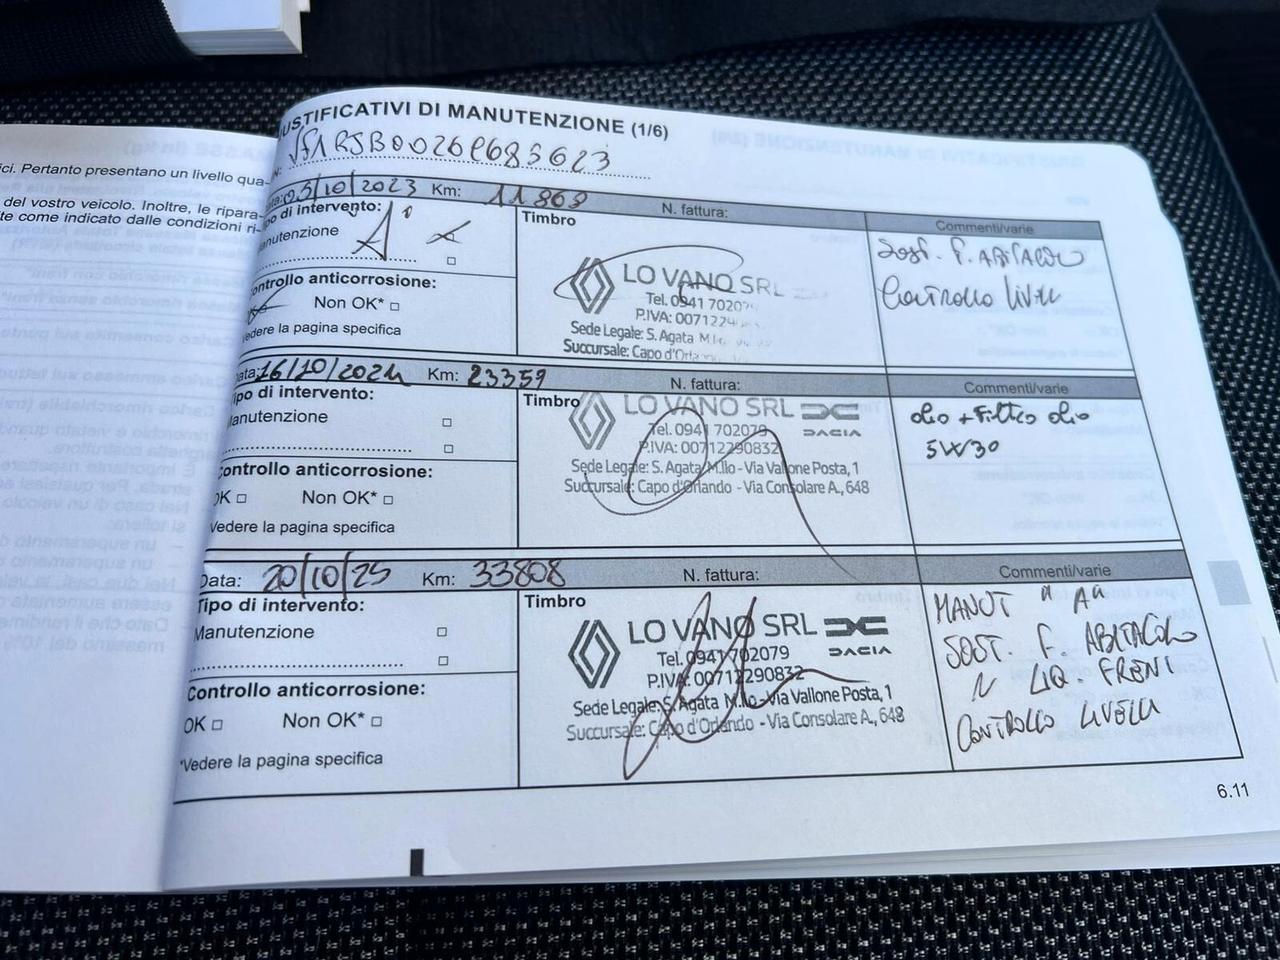 USTIFICATIVI DI MANUTENZIONE (1/6)
N: Vf1RJB00268685623
ici. Pertanto presentano un livello qua-
del vostro veicolo. Inoltre, le ripara-
te come indicato dalle condizioni ri-
ata: 03/10/2023 Km: 11868 N. fattura: Commenti/varie
po di intervento:
anutenzione A
ontrollo anticorrosione:
Non OK*
edere la pagina specifica
Timbro
LO VANO SRL
Tel. 0941 70207
P.IVA: 0071224
Sede Legale: S. Agata M.llo
Succursale: Capo d'Orla
Sost. F. ABITACOLO
Controllo Livelli
ata: 16/10/2024 Km: 23359 N. fattura: Commenti/varie
ipo di intervento:
anutenzione
ontrollo anticorrosione:
OK Non OK*
Vedere la pagina specifica
Timbro
LO VANO SRL
DACIA
Tel. 0941 702079
P.IVA: 00712290832
Sede Legale: S. Agata M.llo - Via Vallone Posta, 1
Succursale: Capo d'Orlando - Via Consolare A., 648
olio + Filtro olio
5W30
Data: 20/10/25 Km: 33808 N. fattura: Commenti/varie
Tipo di intervento:
Manutenzione
Controllo anticorrosione:
OK Non OK*
*Vedere la pagina specifica
Timbro
LO VANO SRL
DACIA
Tel. 0941 702079
P.IVA: 00712290832
Sede Legale: S. Agata M.llo - Via Vallone Posta, 1
Succursale: Capo d'Orlando - Via Consolare A., 648
MANUT "A"
SOST. F. ABITACOLO
" LIQ. FRENI
CONTROLLO LIVELLI
6.11